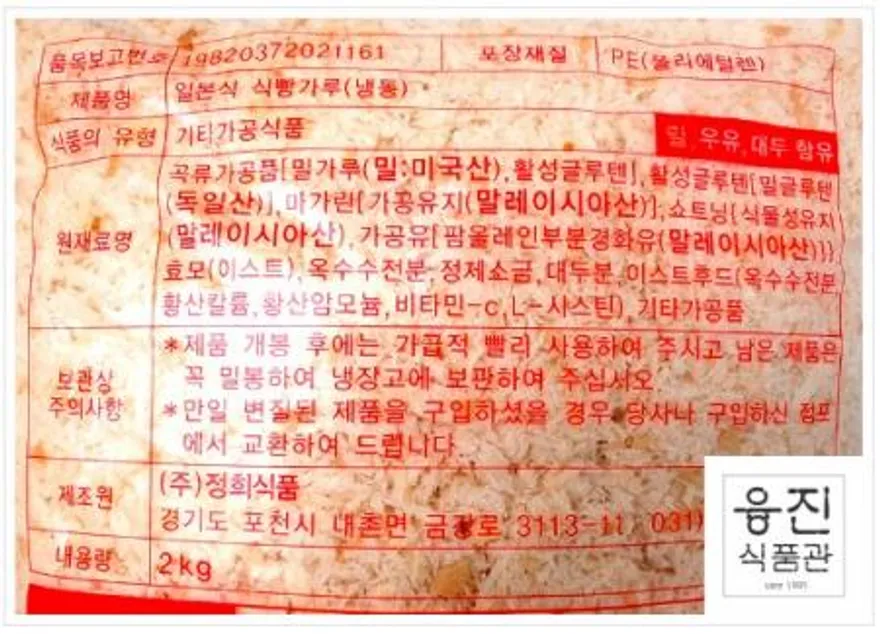 품목보고번호 19820372021161 포장재질 PE(폴리에틸렌)
제품명 일본식 식빵가루(냉동)
식품의 유형 기타가공식품 밀,우유,대두 함유
원재료명
곡류가공품[밀가루(밀:미국산),활성글루텐],활성글루텐[밀글루텐
(독일산)],마가린[가공유지(말레이시아산)],쇼트닝{식물성유지
(말레이시아산),가공유[팜올레인부분경화유(말레이시아산)]}
효모(이스트),옥수수전분,정제소금,대두분,이스트후드(옥수수전분,
황산칼륨,황산암모늄,비타민-c,L-시스틴),기타가공품
보관상
주의사항
*제품 개봉 후에는 가급적 빨리 사용하여 주시고 남은 제품은
꼭 밀봉하여 냉장고에 보관하여 주십시오
*만일 변질된 제품을 구입하셨을 경우 당사나 구입하신 점포
에서 교환하여 드립니다
제조원
(주)정희식품
경기도 포천시 내촌면 금강로 3113-11 031)
내용량 2kg
웅진
식품관
since